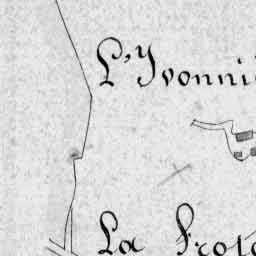 L'Yvonni
La Frote